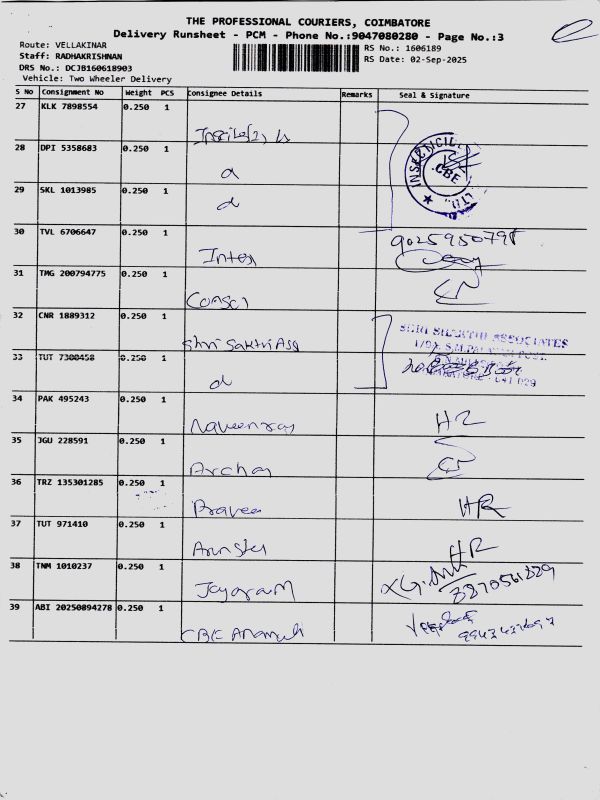 THE PROFESSIONAL COURIERS, COIMBATORE
Delivery Runsheet - PCM - Phone No.:9047080280 - Page No.:3
Route: VELLAKINAR
RS No.: 1606189
Staff: RADHAKRISHNAN
RS Date: 02-Sep-2025
DRS No.: DCJB160618903
Vehicle: Two Wheeler Delivery
S No Consignment No Weight PCS Consignee Details Remarks Seal & Signature
27 KLK 7898554 0.250 1
28 DPI 5358683 0.250 1 d
INSECTICID
CBE
LTD
29 SKL 1013985 0.250 1 d
30 TVL 6706647 0.250 1 Inter
31 TMG 200794775 0.250 1
32 CNR 1889312 0.250 1 Shri Sakthi Ass
SHRI SHAKTHI ASSOCIATES
33 TUT 7300458 0.250 1 d
34 PAK 495243 0.250 1 Naveenraj HR
35 JGU 228591 0.250 1 Archer
36 TRZ 135301285 0.250 1 Praveen HR
37 TUT 971410 0.250 1 HR
38 TNM 1010237 0.250 1 Jayaram
39 ABI 20250894278 0.250 1 CBE